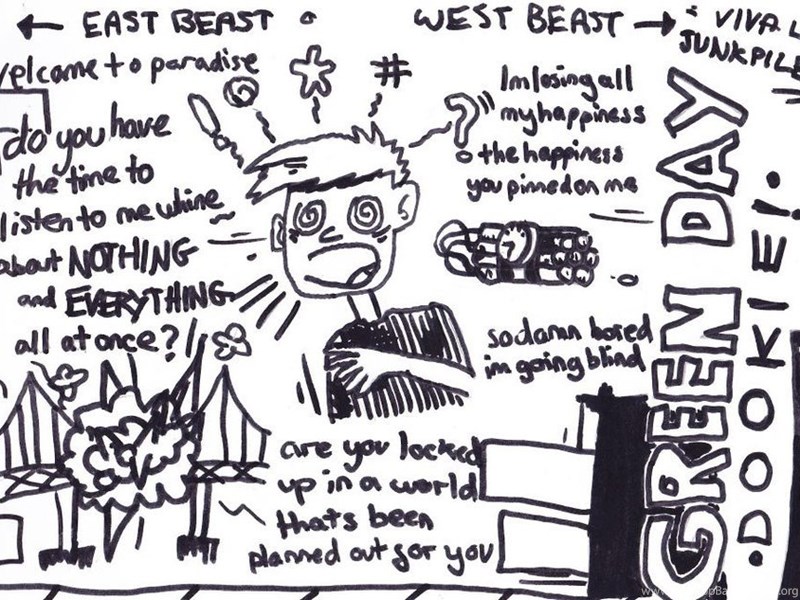 ← EAST BEAST
WEST BEAST →
¡ VIVA L
JUNKPILE
Welcome to paradise
#
?
do you have
the time to
listen to me whine
about NOTHING
and EVERYTHING
all at once?!
Im losing all
my happiness
the happiness
you pinned on me
so damn bored
im going blind
are you locked
up in a world
thats been
planned out for you
GREEN DAY
. DOOKIE! .